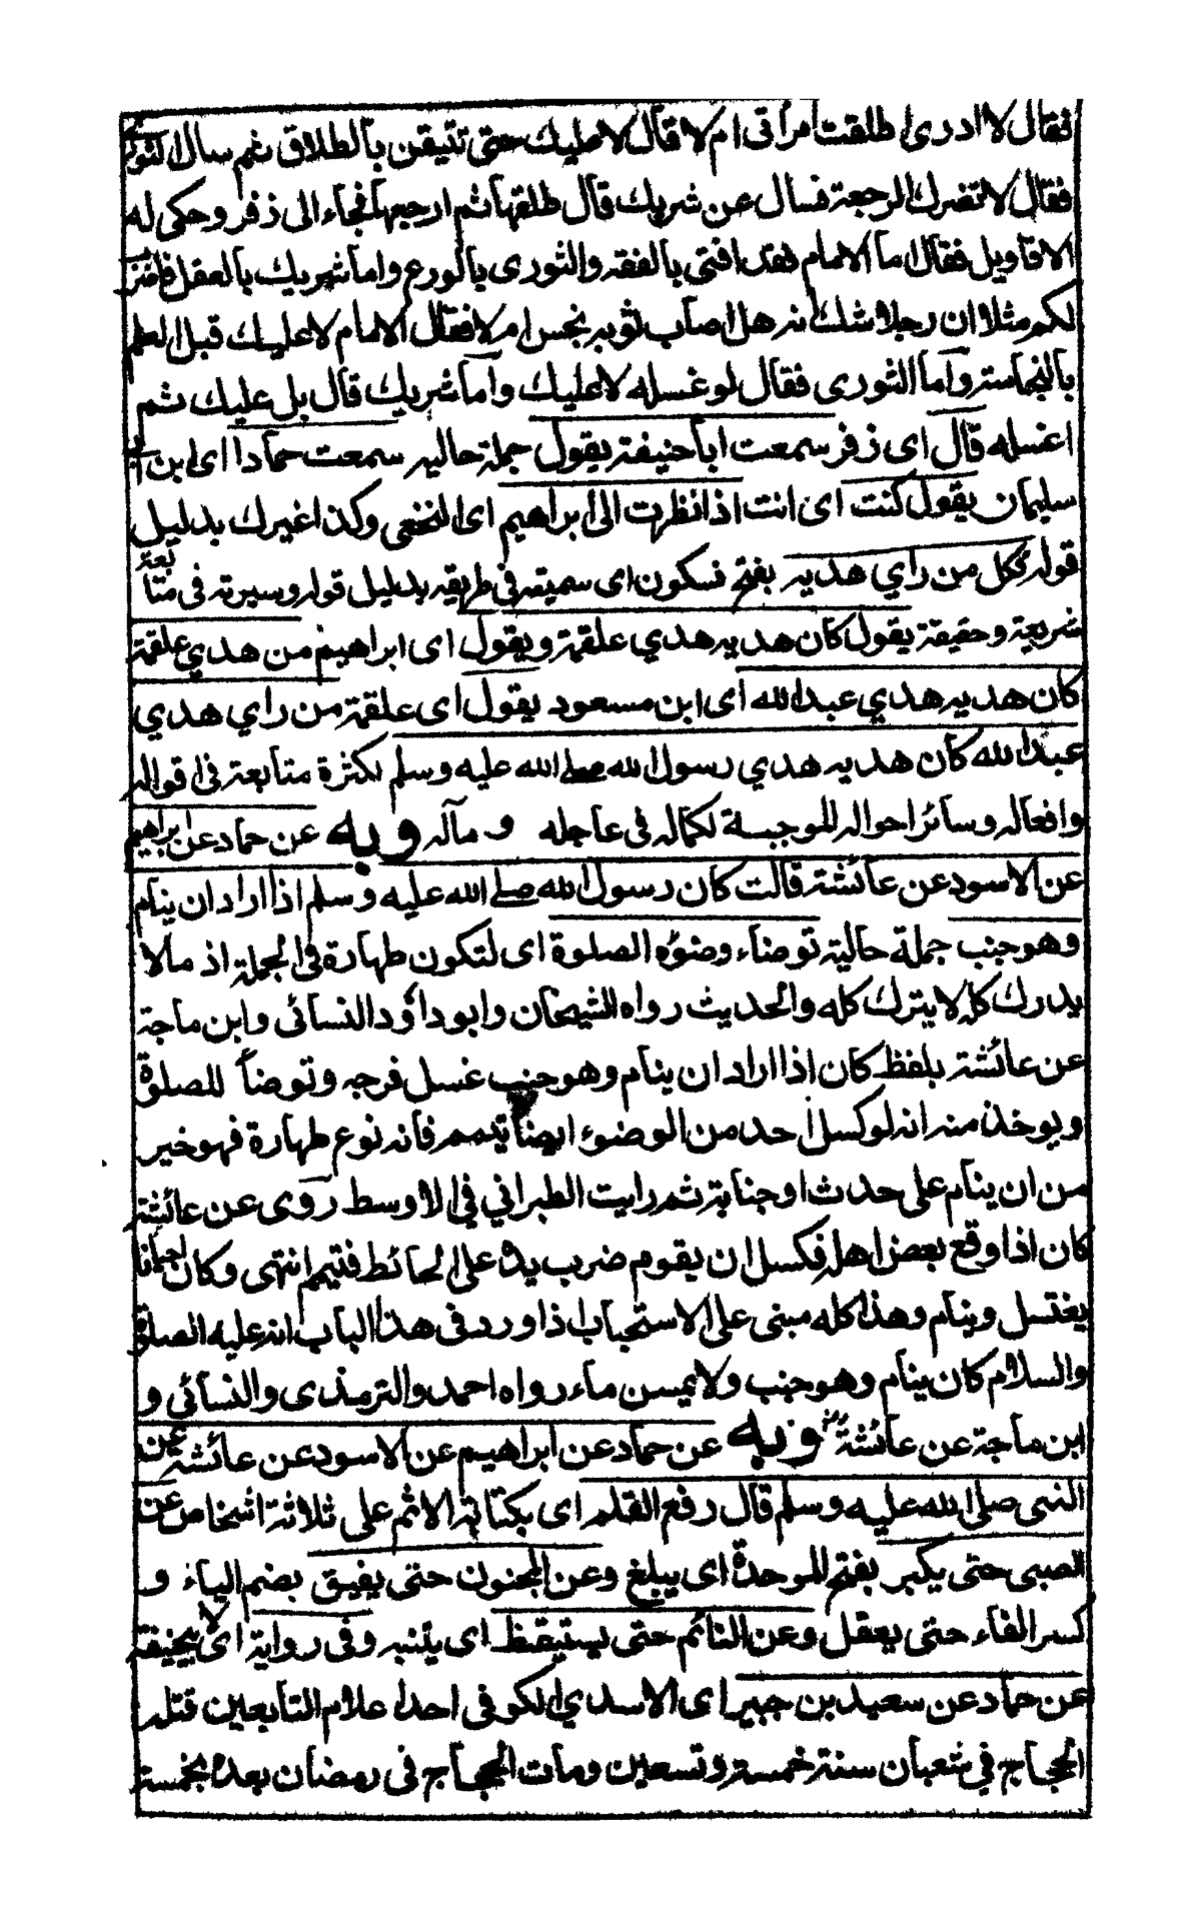 فقال لا ادرى اطلقت امرأتى ام لا قال لا عليك حتى تتيقن بالطلاق ثم سال الثورى
فقال لا تضرك الرجعة فسال عن شريك قال طلقها ثم ارجعها فجاء الى زفر وحكى له
الاقاويل فقال اما الامام فقد افتى بالفقه والثورى بالورع واما شريك بالعقل
لكم مثلا ان رجلا شك انه هل اصاب ثوبه نجس ام لا فقال الامام لا عليك قبل العلم
بالنجاسة واما الثورى فقال لو غسله لا عليك واما شريك قال بل عليك ثم
اغسله قال اى زفر سمعت ابا حنيفة يقول جملة حالية سمعت حمادا اى ابن ابى
سليمان يقول كنت اى انت اذا نظرت الى ابراهيم اى النخعى وكذا غيرك بدليل
قوله فكل من راي هديه بفتح فسكون اى سميته فى طريقه بدليل قوله وسيرته فى متابعة
شريعة وحقيقة يقول كان هديه هدي علقمة ويقول اى ابراهيم من هدي علقمة
كان هديه هدي عبد الله اى ابن مسعود يقول اى علقمة من راي هدي
عبد الله كان هديه هدي رسول الله صلى الله عليه وسلم لكثرة متابعة فى اقواله
وافعاله وسائر احواله الموجبة لكماله فى عاجله و مآله وبه عن حماد عن ابراهيم
عن الاسود عن عائشة قالت كان رسول الله صلى الله عليه وسلم اذا اراد ان ينام
وهو جنب جملة حالية توضاء وضوءه الصلوة اى لتكون طهارة فى الجملة اذ ما لا
يدرك كله لا يترك كله والحديث رواه الشيخان وابو داؤد النسائى وابن ماجة
عن عائشة بلفظ كان اذا اراد ان ينام وهو جنب غسل فرجه وتوضأ للصلوة
ويوخذ منه انه لو كسل احد من الوضوء ايضا يتيمم فانه نوع طهارة فهو خير
من ان ينام على حدث او جنابة ثم رايت الطبراني في الاوسط روى عن عائشة
كان اذا وقع بعض اهله فكسل ان يقوم ضرب يده على الحائط فتيمم انتهى وكان احيانا
يغتسل وينام وهذا كله مبنى على الاستحباب اذ ورد فى هذا الباب انه عليه الصلوة
والسلام كان ينام وهو جنب ولا يمس ماء رواه احمد والترمذى والنسائي و
ابن ماجة عن عائشة رض وبه عن حماد عن ابراهيم عن الاسود عن عائشة عن
النبى صلى الله عليه وسلم قال رفع القلم اى بكتابة الاثم على ثلاثة اشخاص عن
الصبى حتى يكبر بفتح الموحدة اى يبلغ وعن المجنون حتى يفيق بضم الياء و
كسر الفاء حتى يعقل وعن النائم حتى يستيقظ اى يتنبه وفى رواية لابى حنيفة
عن حماد عن سعيد بن جبير اى الاسدي الكوفى احد اعلام التابعين قتله
الحجاج في شعبان سنة خمسة وتسعين ومات الحجاج فى رمضان بعده بخمسة